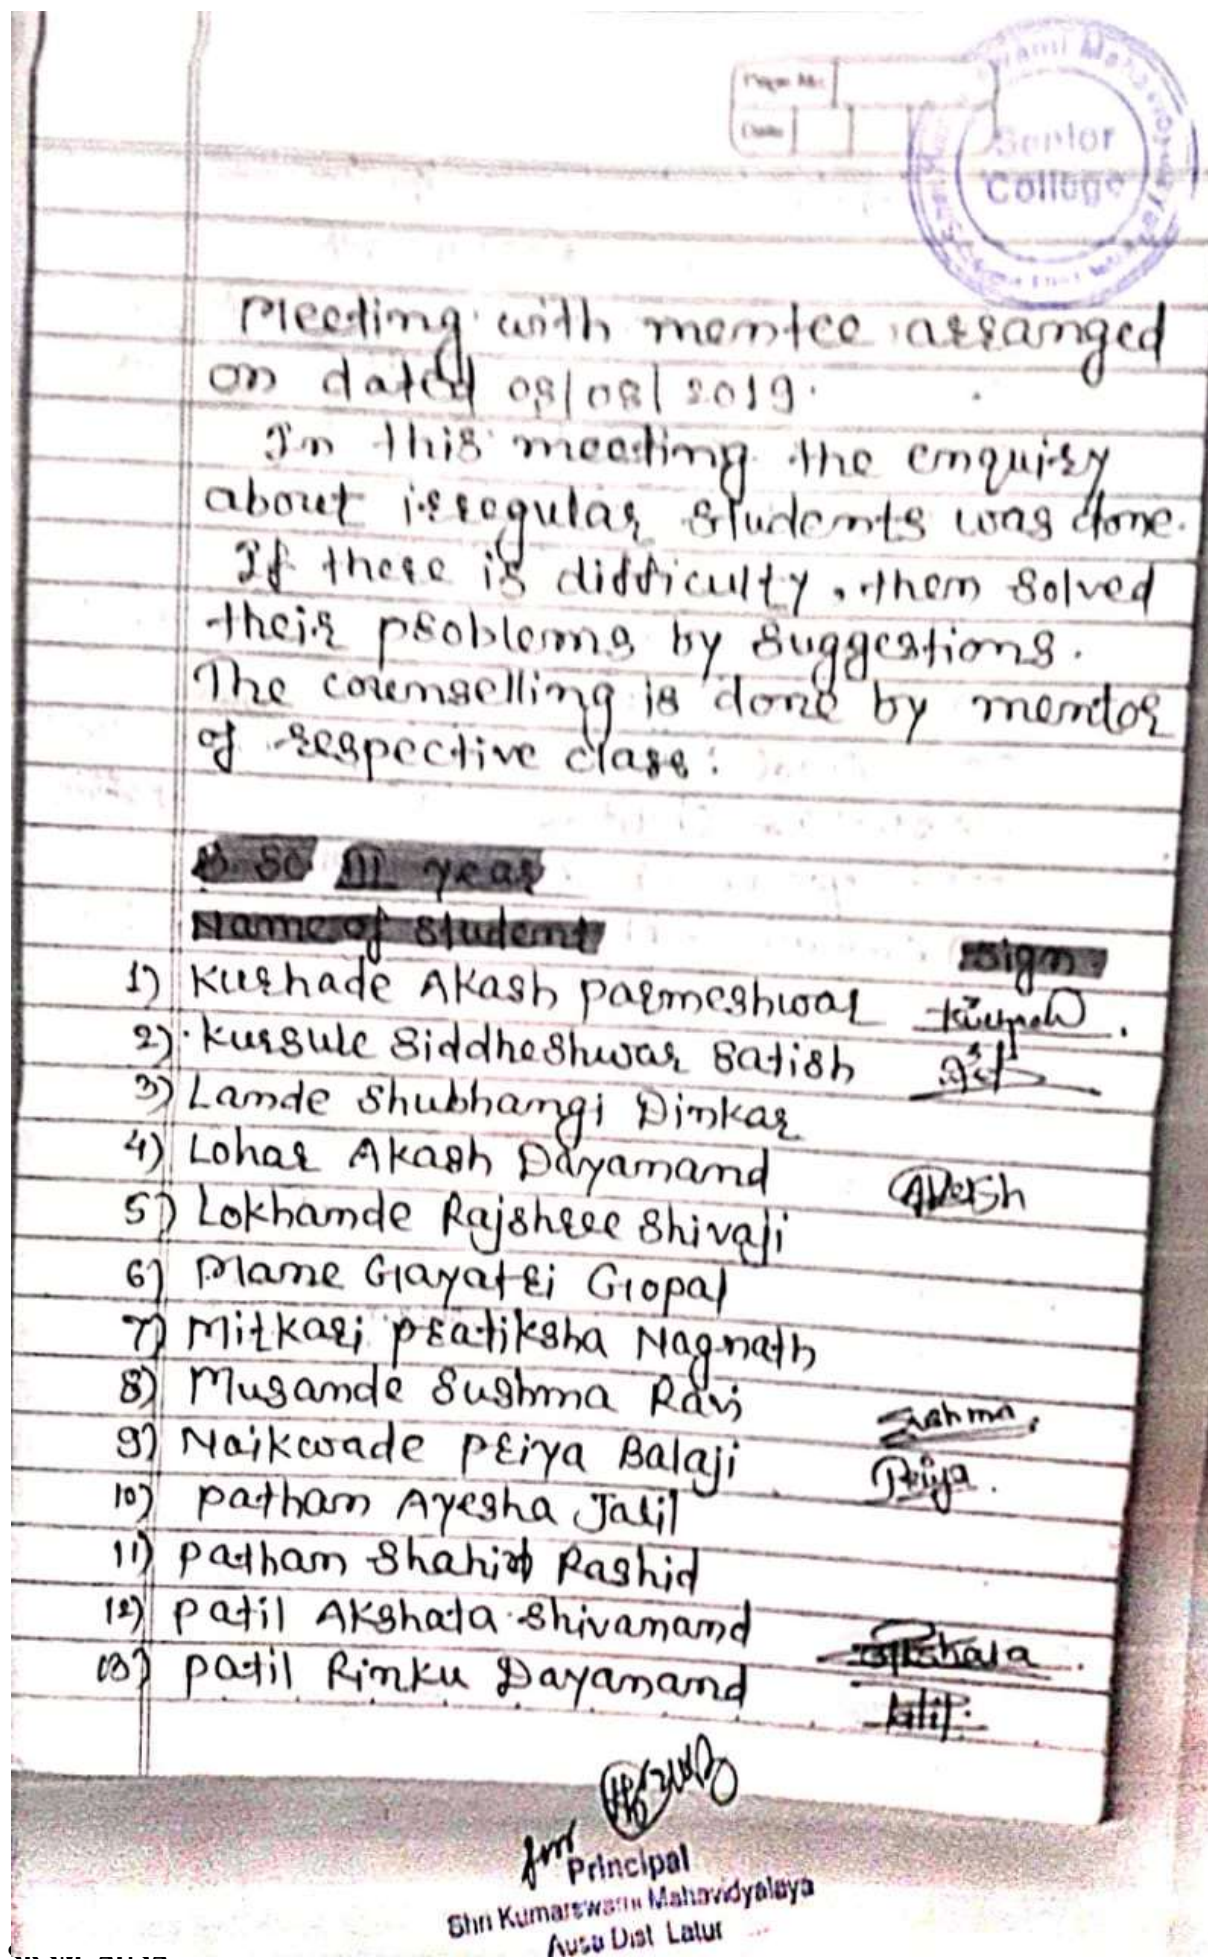 Page No.
Date
Swami Mahavidyalaya
Senior
College
Meeting with mentee arranged
on dated 08/08/2019.
In this meeting the enquiry
about irregular students was done.
If there is difficulty, them solved
their problems by suggestions.
The counselling is done by mentor
of respective class.
B.Sc III year
Name of Student
Sign
1) Kurhade Akash parmeshwar
2) Kursule Siddheshwar Satish
3) Lamde Shubhangi Dinkar
4) Lohar Akash Dayanand Akash
5) Lokhande Rajshree Shivaji
6) Mane Gayatri Gopal
7) Mitkari pratiksha Nagnath
8) Musande Sushma Ravi Sushma
9) Naikwade priya Balaji Priya
10) pathan Ayesha Jalil
11) pathan Shahin Rashid
12) patil Akshata Shivanand Akshata
13) patil Rinku Dayanand patil
for
Principal
Shri Kumarswami Mahavidyalaya
Ausa Dist Latur